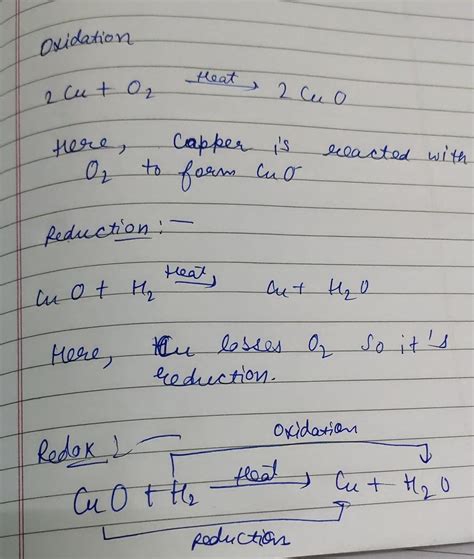 Oxidation
2 Cu + O2 Heat→ 2 CuO
Here, Capper is reacted with
O2 to form CuO
Reduction :—
CuO + H2 Heat→ Cu + H2O
Here, Cu losses O2 so it's
reduction.
Redox :—
Oxidation
CuO + H2 Heat→ Cu + H2O
Reduction